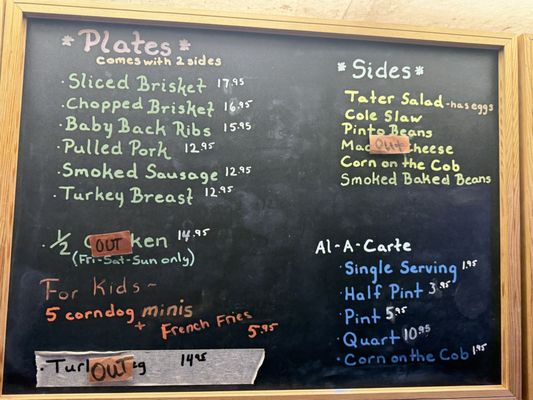 *Plates*
comes with 2 sides
· Sliced Brisket 17.95
· Chopped Brisket 16.95
· Baby Back Ribs 15.95
· Pulled Pork 12.95
· Smoked Sausage 12.95
· Turkey Breast 12.95
· 1/2 C OUT ken 14.95
(Fri-Sat-Sun only)
For Kids ~
5 corndog minis
+ French Fries
5.95
· Turk OUT g 14.95
*Sides*
Tater Salad - has eggs
Cole Slaw
Pinto Beans
Mac OUT Cheese
Corn on the Cob
Smoked Baked Beans
Al-A-Carte
· Single Serving 1.95
· Half Pint 3.95
· Pint 5.95
· Quart 10.95
· Corn on the Cob 1.95